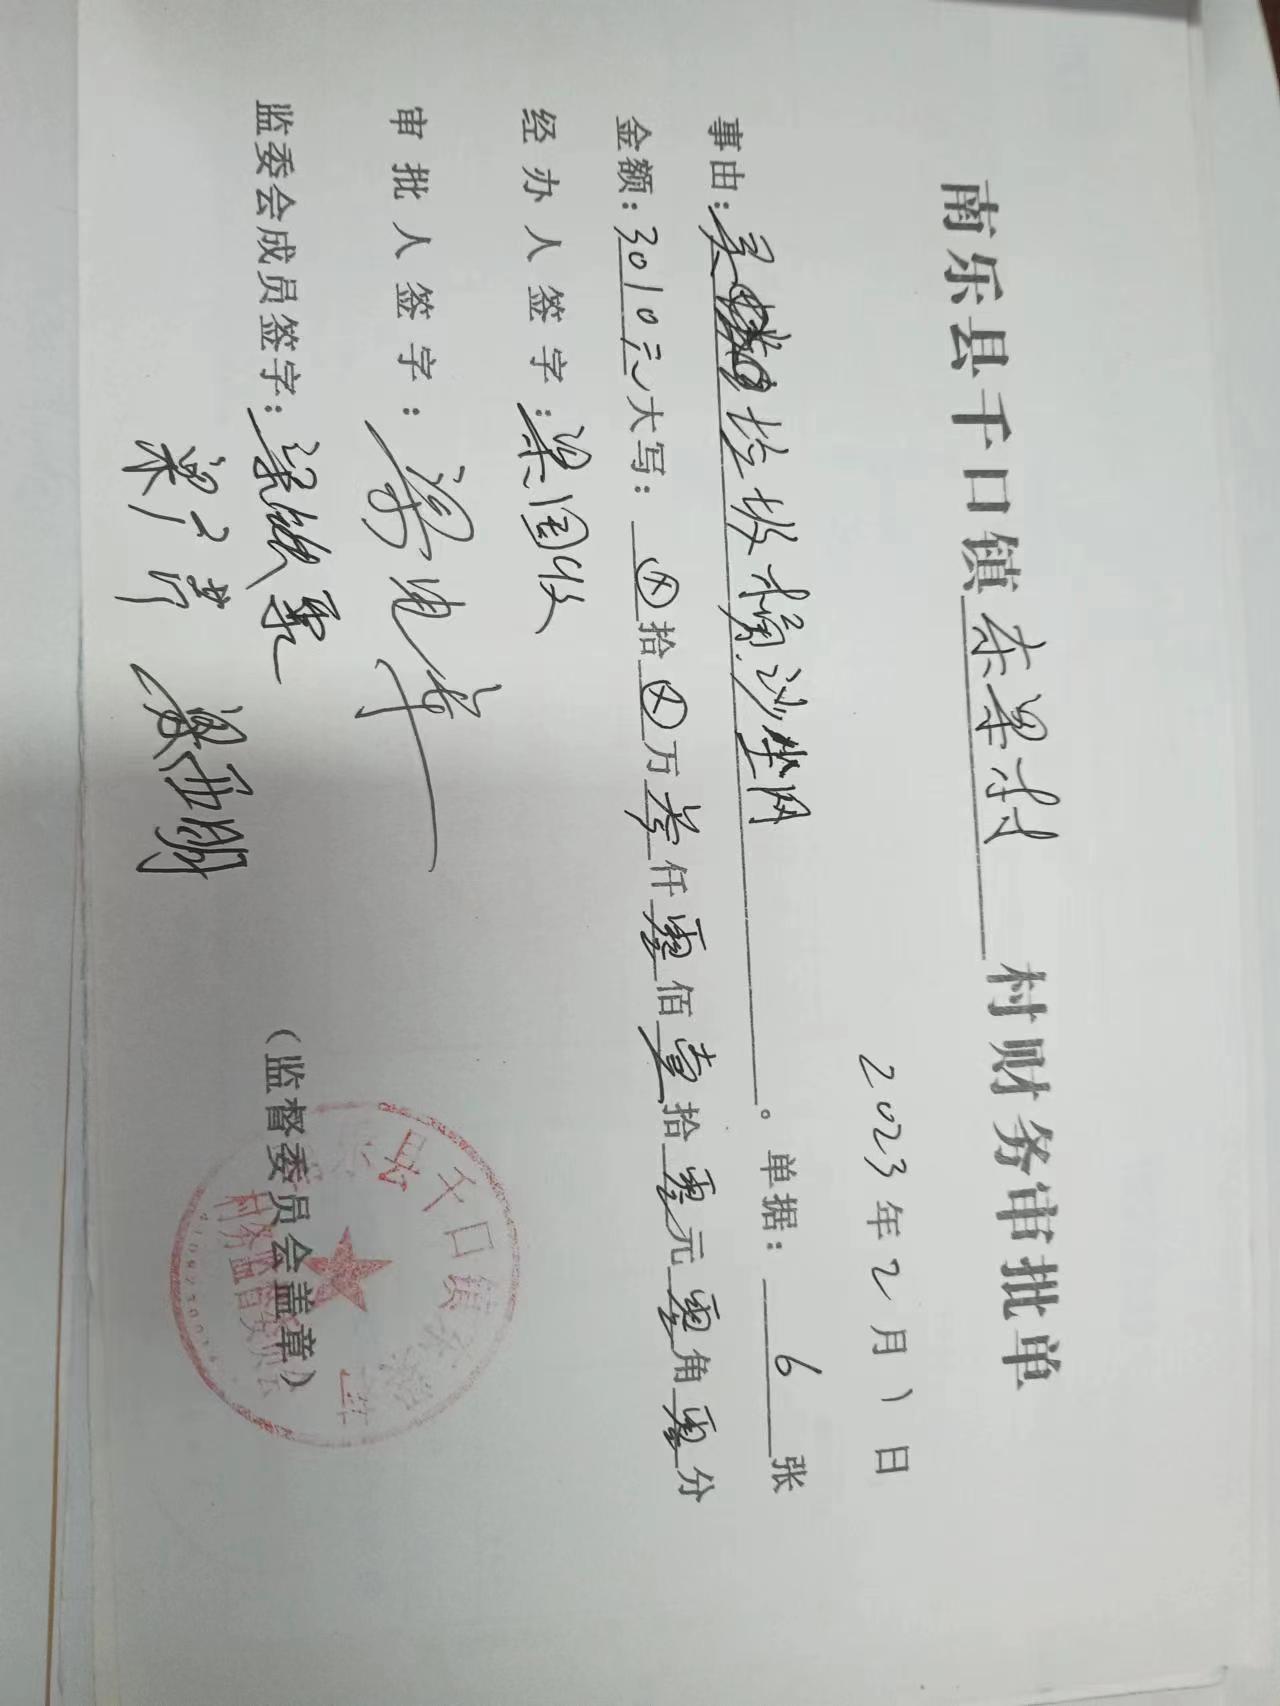 南乐县千口镇东梁村村财务审批单
2023年2月1日
事由:买垃圾桶.沙尘网。单据:6张
金额:3010元大写:ⓧ拾ⓧ万叁仟零佰壹拾零元零角零分
经办人签字:梁国收
审批人签字:梁
监委会成员签字:梁
梁 明
(监督委员会盖章)
县千口镇东梁村
村务监督委员会